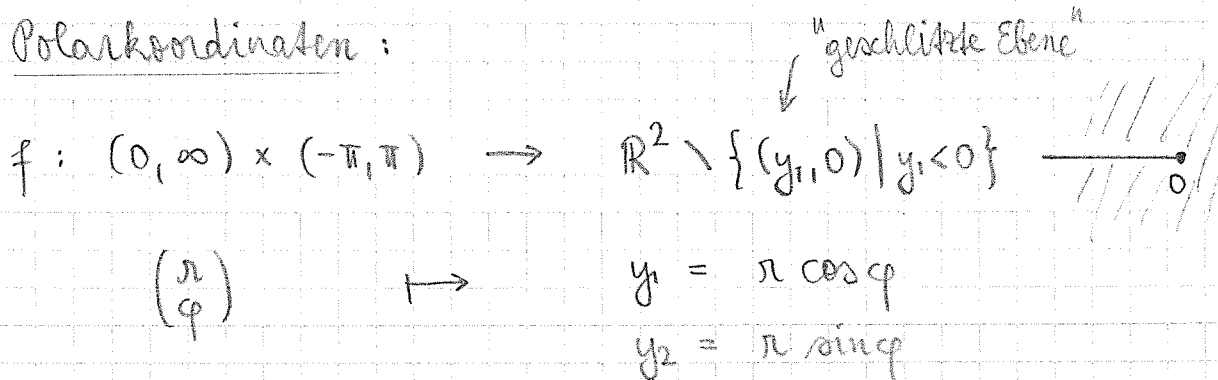 Polarkoordinaten :
"geschlitzte Ebene"
f : (0, ∞) × (-π, π) → ℝ² \ {(y₁, 0) | y₁ < 0}
0
(r φ) ↦ y₁ = r cos φ
y₂ = r sin φ